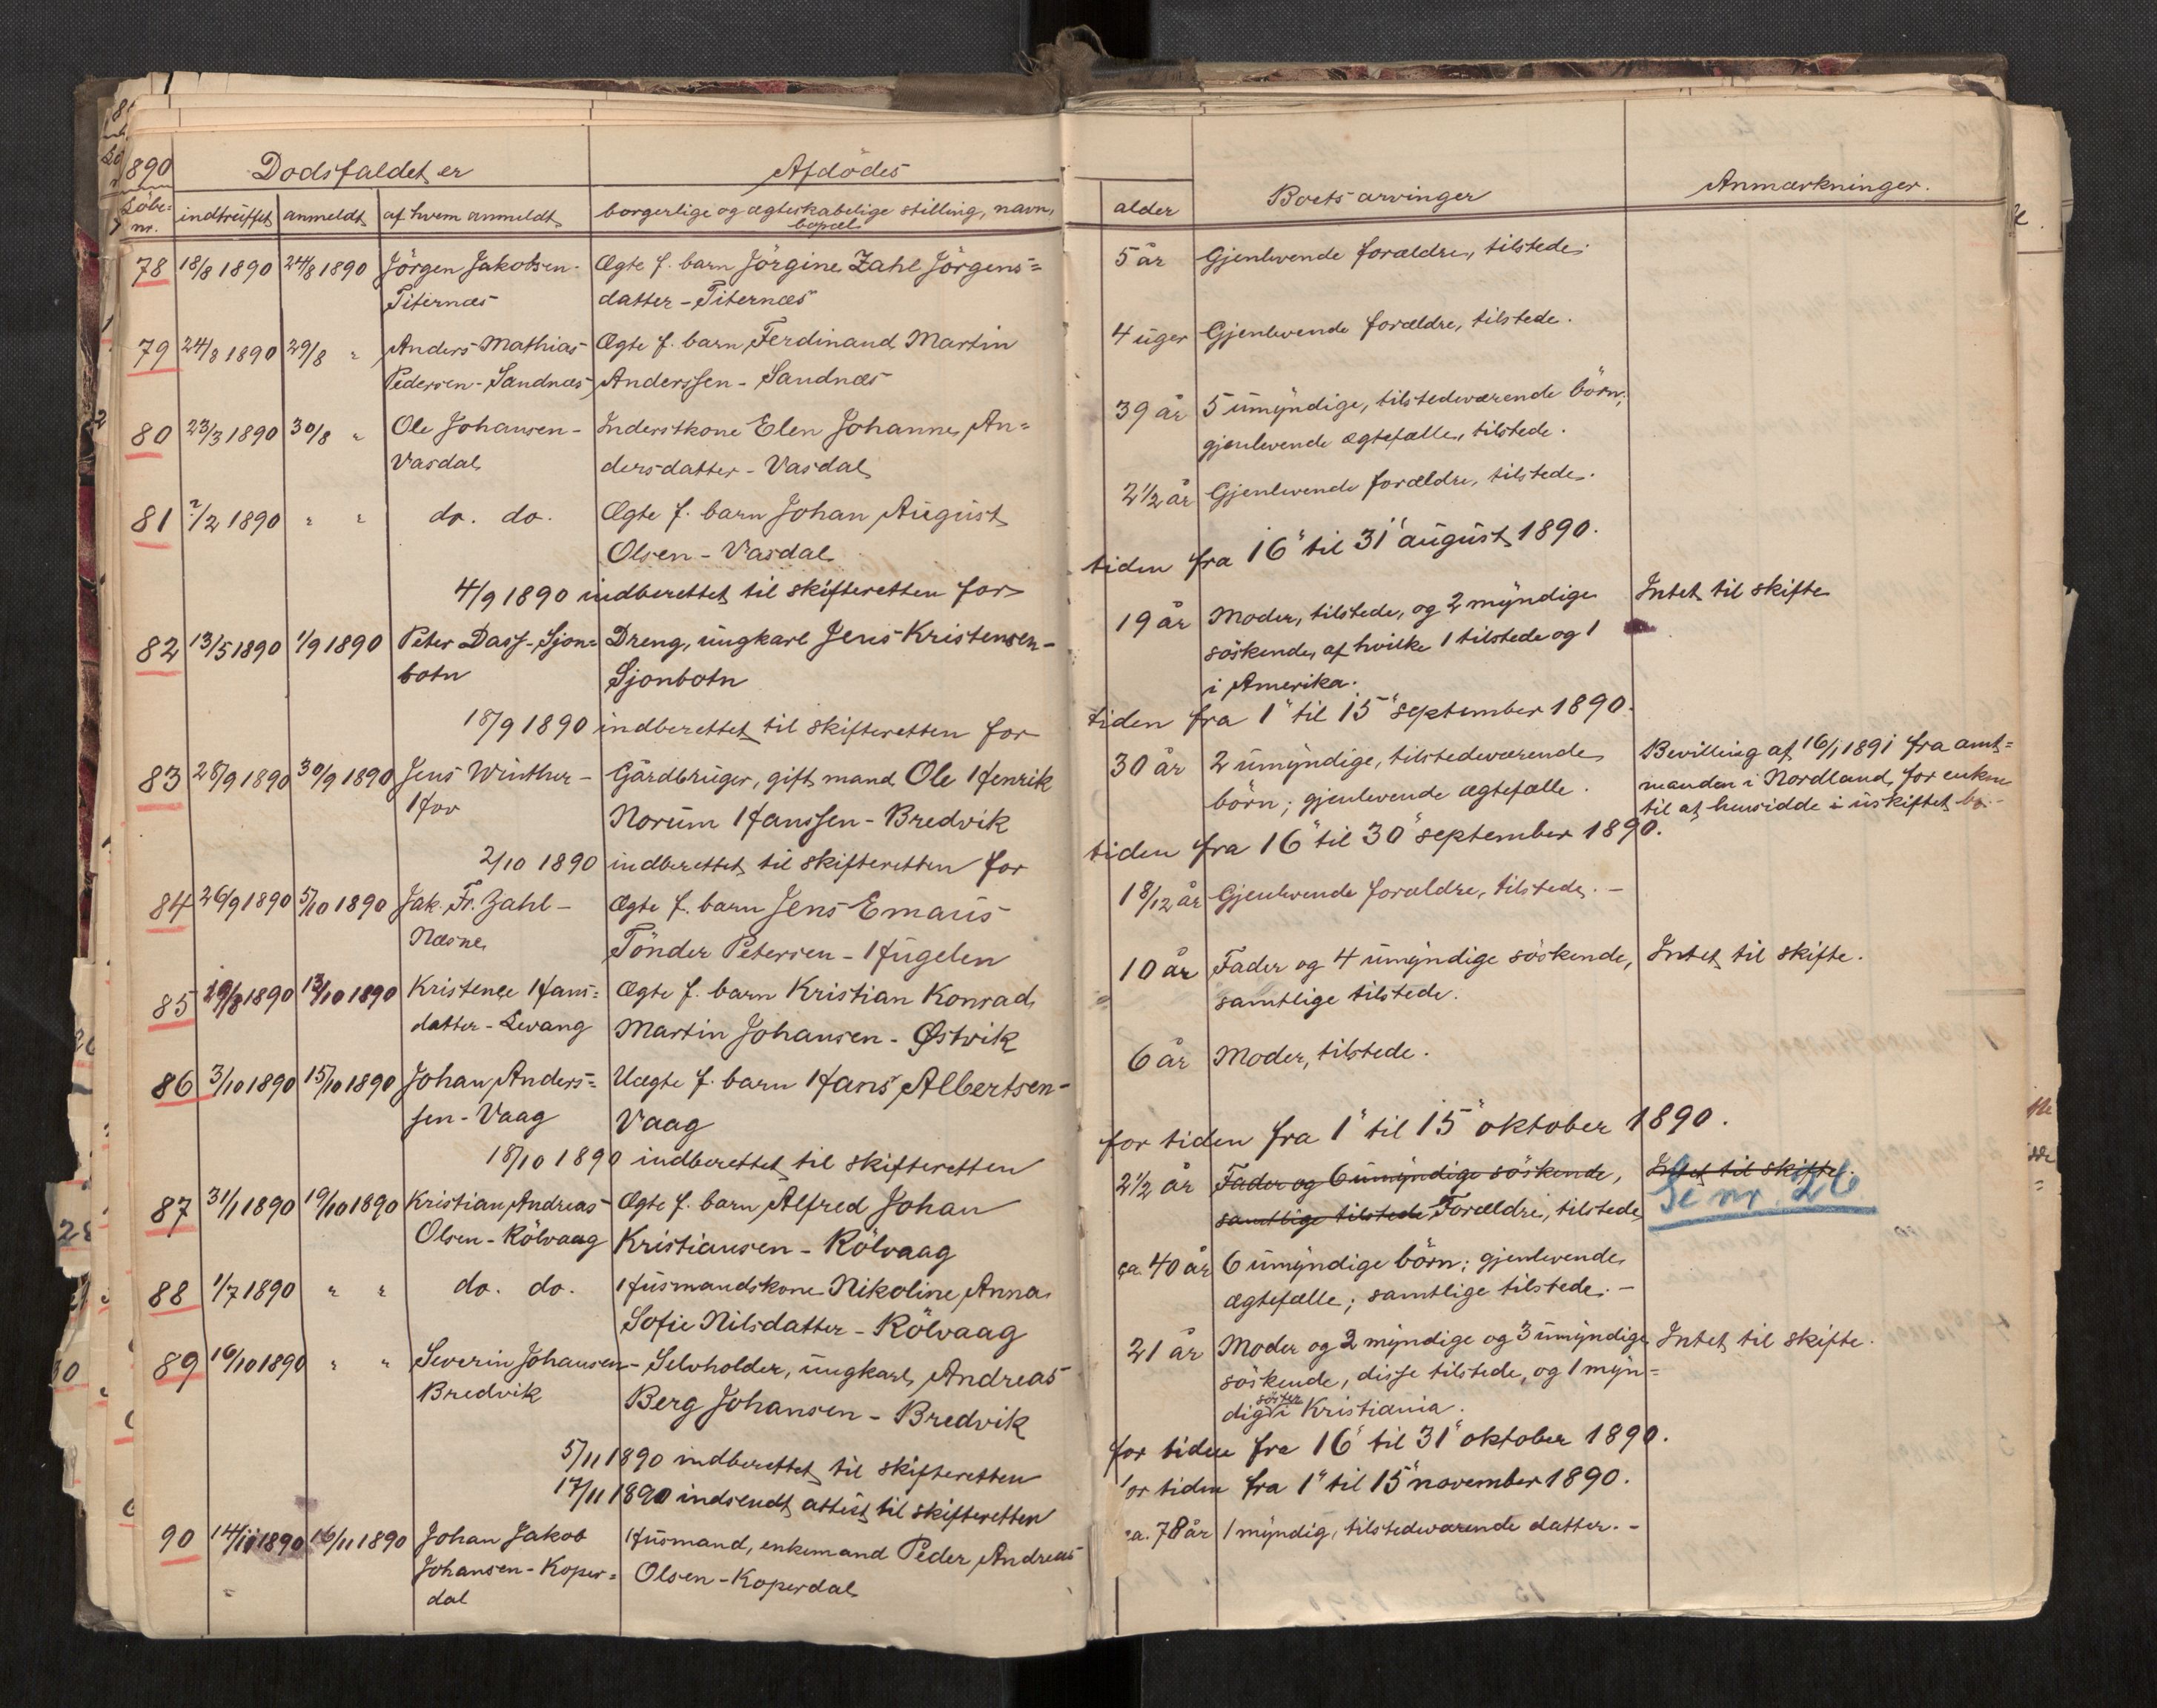 890 Dödsfaldet er Afdödes
Löbe= indtruffet anmeldt af hvem anmeldt borgerlige og ægteskabelige stilling, navn, alder Boets arvinger Anmærkninger.
nr. bopæl
78 18/8 1890 24/8 1890 Jörgen Jakobsen- Ægte f. barn Jörgine Zahl Jörgens= 5 år Gjenlevende forældre, tilstede.
Titternæs datter - Titternæs
79 24/8 1890 29/8 " Anders Mathias Ægte f. barn Ferdinand Martin 4 uger Gjenlevende forældre, tilstede.
Pedersen - Sandnæs Anderssen - Sandnæs
80 23/3 1890 30/8 " Ole Johansen - Inderstkone Elen Johanne An= 39 år 5 umyndige, tilstedeværende börn;
Vasdal dersdatter - Vasdal gjenlevende ægtefælle, tilstede.
81 ?/2 1890 " " do. do. Ægte f. barn Johan August 2 1/2 år Gjenlevende forældre, tilstede.
Olsen - Vasdal
4/9 1890 indberettet til skifteretten for tiden fra 16" til 31" august 1890.
82 13/5 1890 1/9 1890 Peter Dass - Sjon= Dreng, ungkarl Jens Kristensen - 19 år Moder, tilstede, og 2 myndige Intet til skifte
botn Sjonbotn söskende, af hvilke 1 tilstede og 1
i Amerika.
18/9 1890 indberettet til skifteretten for tiden fra 1" til 15" september 1890.
83 28/9 1890 30/9 1890 Jens Winther - Gårdbruger, gift mand Ole Henrik 30 år 2 umyndige, tilstedeværende Bevilling af 16/1 1891 fra amt=
Hov Norum Hanssen - Bredvik börn; gjenlevende ægtefælle. manden i Nordland for enken
til at hensidde i uskiftet bo.
2/10 1890 indberettet til skifteretten for tiden fra 16" til 30" september 1890.
84 26/9 1890 5/10 1890 Jak. Fr. Zahl - Ægte f. barn Jens Emaus 1 8/12 år Gjenlevende forældre, tilstede. -
Næsne Tönder Petersen - Hugelen
85 1890 13/10 1890 Kristence Hans= Ægte f. barn Kristian Konrad 10 år Fader og 4 umyndige söskende, Intet til skifte.
datter - Levang Martin Johansen - Østvik samtlige tilstede.
86 3/10 1890 15/10 1890 Johan Anders= Uægte f. barn Hans Albertsen - 6 år Moder, tilstede.
sen - Vaag Vaag
18/10 1890 indberettet til skifteretten for tiden fra 1" til 15" oktober 1890.
87 31/1 1890 19/10 1890 Kristian Andreas Ægte f. barn Alfred Johan 2 1/2 år Fader og 6 umyndige söskende, Intet til skifte.
Olsen - Rölvaag Kristiansen - Rölvaag samtlige tilstede Forældre, tilstede Se nr. 26
88 1/7 1890 " " do. do. Husmandskone Nikoline Anna ca. 40 år 6 umyndige börn; gjenlevende
Sofie Nilsdatter - Rölvaag ægtefælle; samtlige tilstede. -
89 16/10 1890 " " Severin Johansen - Selvholder, ungkarl Andreas 21 år Moder og 2 myndige og 3 umyndige Intet til skifte.
Bredvik Berg Johansen - Bredvik söskende, disse tilstede, og 1 myn=
dig söster i Kristiania.
5/11 1890 indberettet til skifteretten for tiden fra 16" til 31" oktober 1890.
17/11 1890 indsendt attest til skifteretten for tiden fra 1" til 15" november 1890.
90 14/11 1890 16/11 1890 Johan Jakob Husmand, enkemand Peder Andreas ca. 78 år 1 myndig, tilstedeværende datter. -
Johansen - Koper= Olsen - Koperdal
dal